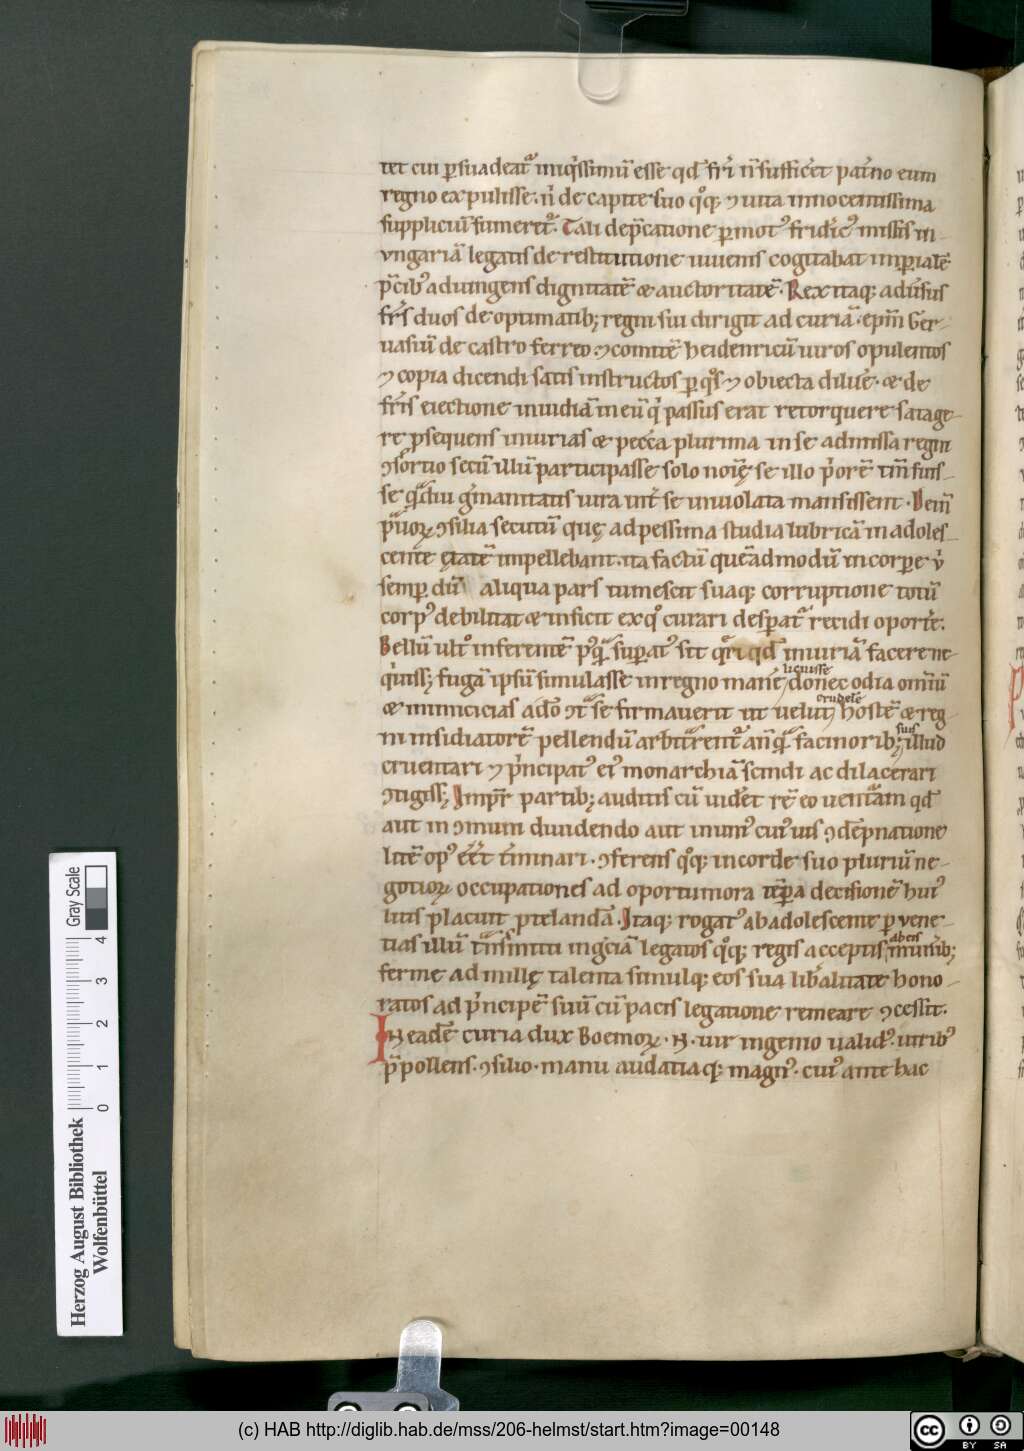 tet cui ꝑsuadeat᷑ iniq̇ssimū esse qđ fr̄i n̄ sufficēt pat̓no eum
regno expulisse. n̓ de capite suo qͦꝗ; ⁊ uita innocentissima
suppliciū sumerit᷑. Tali dep̄catione ꝑmot᷒ fridic᷒ missis in
vngariā legatis de restitutione iuuenis cogitabat imꝑialē
p̄cib᷒ adiungens dignitatē & auctoritatē. Rex itaꝗ; adūsus
fr̄is duos de optimatib; regni sui dirigit ad curiā. ep̄m Ger-
uasiū de castro ferreo ⁊ comitē heidenricū uiros opulentos
⁊ copia dicendi satis instructos ꝑ qͦs ⁊ obiecta diluēt. & de
fr̄is eiectione inuidiā in eū q̇ passus erat retorquere satage-
re ꝓsequens iniurias & pecc̄a plurima in se admissa regni
ꝯsortio secū illū participasse solo noīe se illo p̓orē tm̄ fuis-
se qᷓdiu ḡmanitatis iura int̄ se inuiolata mansissent. Dein̄
pᷓuoꝝ ꝯsilia secutū quę ad pessima studia lubricā in adoles-
cente ętatē impellebant. ita factū queādmodū in corꝑe ⁊
semꝑ dū aliqua pars tumescit suaꝗ; corruptione totū
corp᷒ debilitat & inficit ex qͦ curari desꝑat᷑ recidi oport̄e.
Bellū ult̄ inferentē p᷒qᷓ suꝑat᷒ sit qᷓri qđ iniuriā facere ne-
q̇uiss; fugā ipsū simulasse in regno manē licuisse donec odia omīū
& inimicicias ad̄o ꝯt᷑ se firmauerit ut velut crudelē hostē & reg-
ni insidiatorē pellendū arbitrent᷑ an̄ qᷓ facinorib; suis illud
cruentari ⁊ p̓ncipat᷒ ei᷒ monarchiā scindi ac dilacerari
ꝯtigiss; Imp̄r partib; auditis cū uidēt rē eo uentā qđ
aut in ꝯmuni diuidendo aut in uni᷒ cui᷒uis ꝯdēpnatione
litē op᷒ eēt t̄minari. ꝯferens qͦꝗ; in corde suo pluriū ne-
gotioꝝ occupationes ad oportuniora tēꝑa decisionē hui᷒
litis placuit ꝓtelandā. Itaꝗ; rogat᷒ ab adolescente ꝑ vene-
tias illū tᷓnsmitti in gᷓciā legatos qͦꝗ; regis acceptis ab eis munīb;
ferme ad mille talenta simulꝗ; eos sua lib̄alitate hono-
ratos ad p̓ncipē suū cū pacis legatione remeare ꝯcessit.
IN eadē curia dux Boemoꝝ. N. uir ingenio ualid᷒. uirib᷒
p̄pollens. ꝯsilio. manu audatiaꝗ; magn᷒. cui᷒ ante hac
Herzog August Bibliothek
Wolfenbüttel
0 1 2 3 4
Gray Scale
(c) HAB http://diglib.hab.de/mss/206-helmst/start.htm?image=00148
cc BY SA